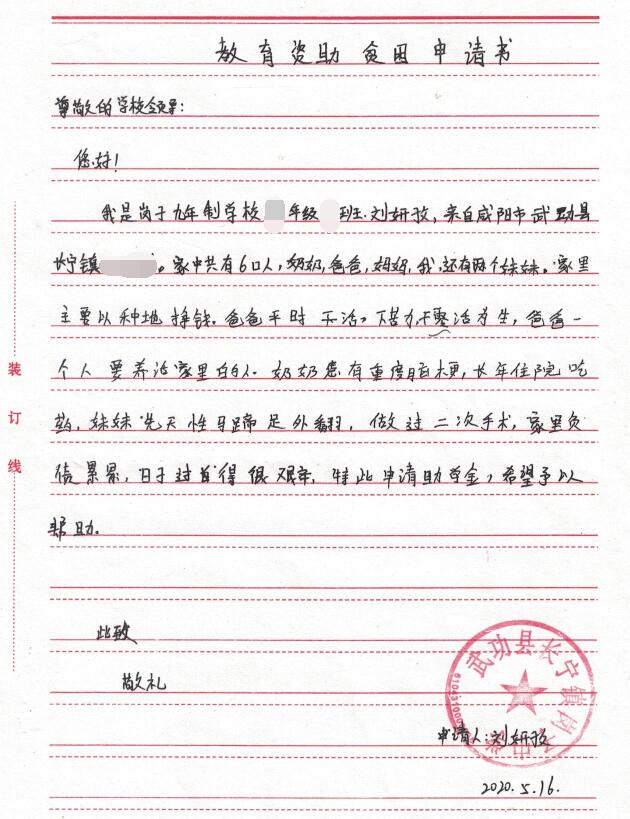 教育资助贫困申请书
尊敬的学校领导:
您好!
我是岗子九年制学校 年级 班刘妍孜,来自咸阳市武功县
长宁镇 。家中共有6口人,奶奶,爸爸,妈妈,我,还有两个妹妹。家里
主要以种地挣钱。爸爸平时 干活 下苦力干零活为生,爸爸一
个人要养活家里6口人。奶奶患有重度脑梗,长年住院吃
药,妹妹先天性马蹄足外翻,做过二次手术,家里负
债累累,日子过 得很艰辛,特此申请助学金,希望予以
帮助。
此致
敬礼
申请人:刘妍孜
2020.5.16.
装
订
线
武功县长宁镇岗子中学